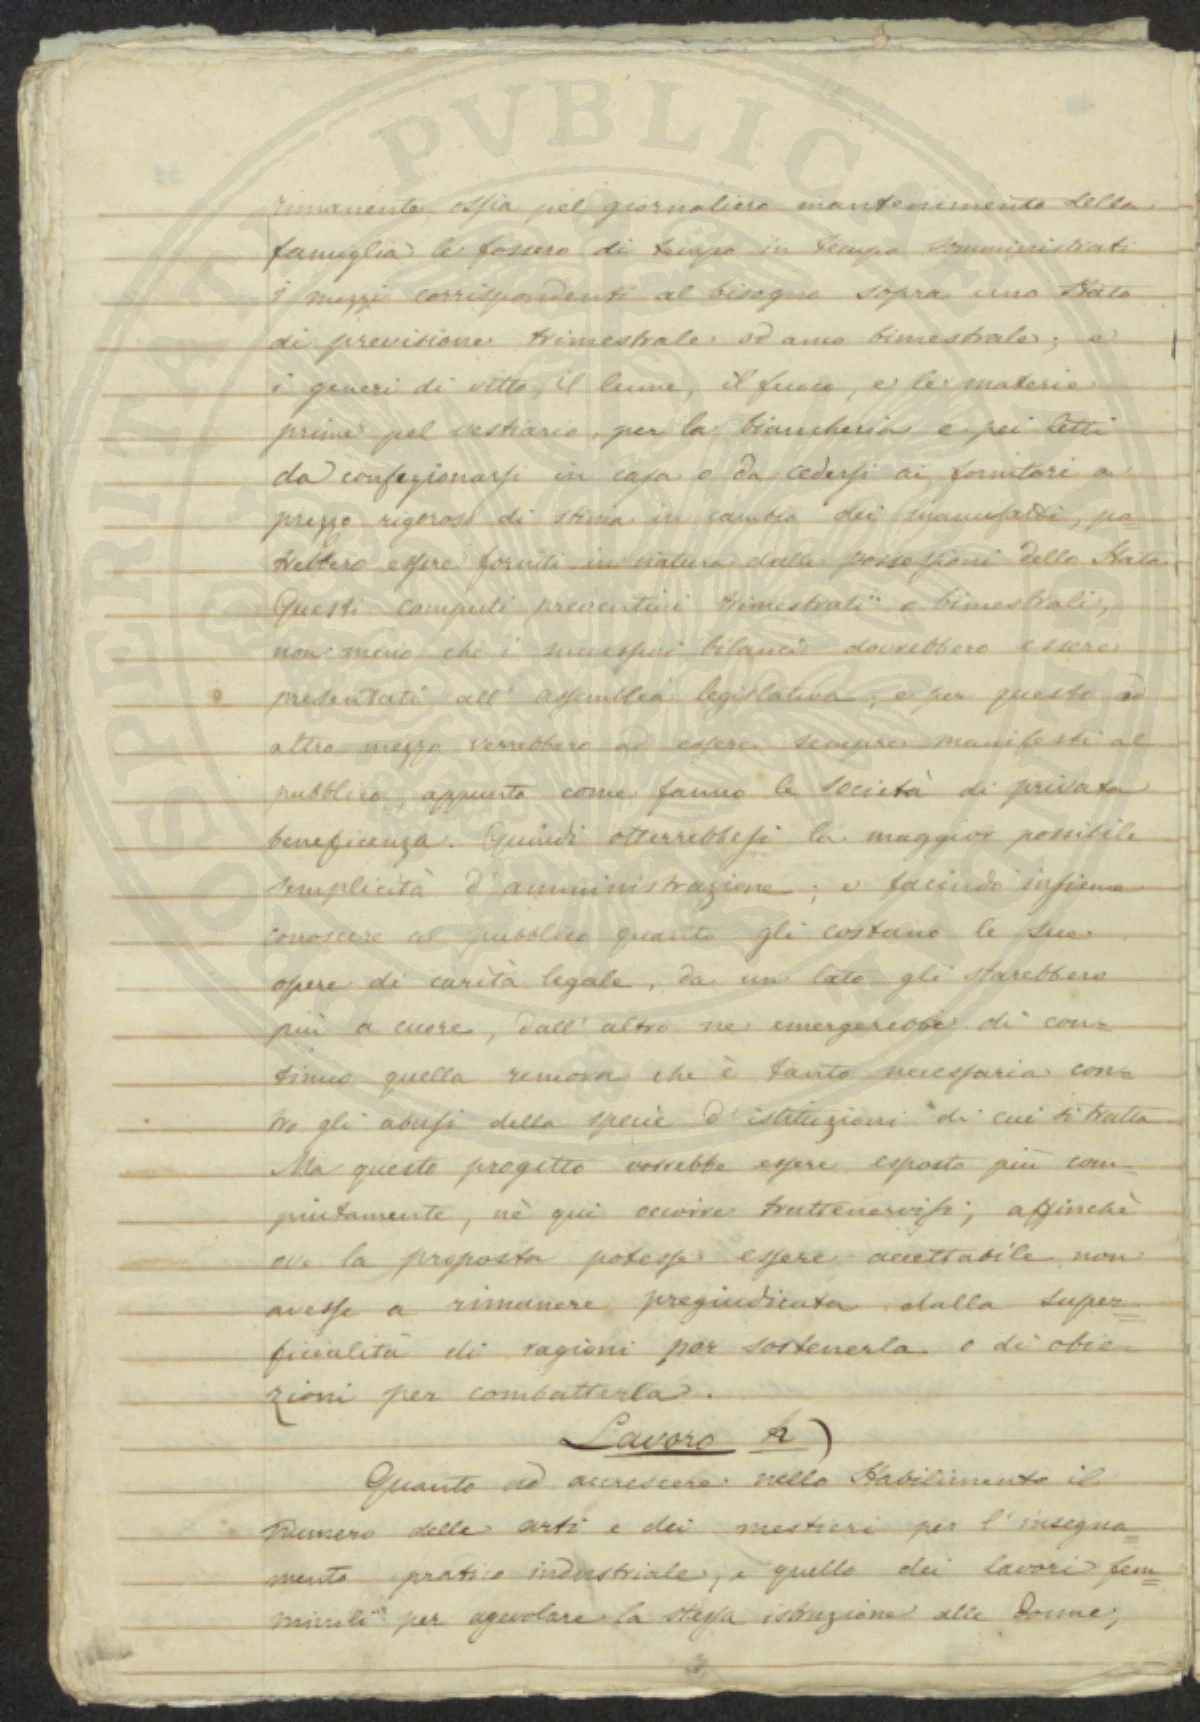 rimanente, ossia pel giornaliero mantenimento della
famiglia le fossero di tempo in tempo somministrati
i mezzi corrispondenti al bisogno sopra uno Stato
di previsione trimestrale od anco bimestrale; e
i generi di vitto, il lume, il fuoco, e le materie
prime pel vestiario, per la biancheria e pei letti
da confezionarsi in casa o da cedersi ai fornitori a
prezzo rigoroso di stima in cambio dei manufatti, po=
trebbero essere forniti in natura dalle possessioni dello Stato.
Questi computi preventivi trimestrali o bimestrali,
non meno che i successivi bilanci dovrebbero essere
presentati all' assemblea legislativa; e per questo od
altro mezzo verrebbero ad essere sempre manifesti al
pubblico, appunto come fanno le società di privata
beneficenza. Quindi otterrebbesi la maggior possibile
semplicità d'amministrazione; e facendo insieme
conoscere al pubblico quanto gli costano le sue
opere di carità legale, da un lato gli starebbero
più a cuore, dall' altro ne emergerebbe di con=
tinuo quella remora che è tanto necessaria con=
tro gli abusi della specie d'istituzioni di cui si tratta
Ma questo progetto vorrebbe essere esposto più com=
piutamente, nè qui occorre trattenervisi; affinchè
ove la proposta potesse essere accettabile non
avesse a rimanere pregiudicata dalla super=
ficialità di ragioni per sostenerla o di obie=
zioni per combatterla.
Lavoro h)
Quanto ad accrescere nello Stabilimento il
numero delle arti e dei mestieri per l'insegna=
mento pratico industriale, e quello dei lavori fem=
minili per agevolare la stessa istruzione alle donne,
PVBLICAE
PROSPERITATI